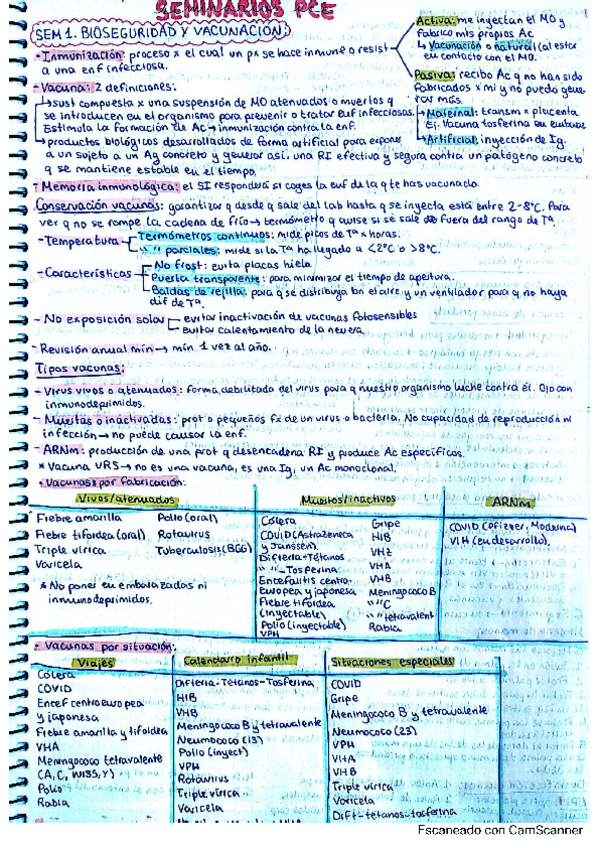 SEMINARIOS PCE
SEM 1. BIOSEGURIDAD Y VACUNACIÓN:
- Inmunización: proceso x el cual un px se hace inmune o resist
a una enf infecciosa.
Activa: me inyectan el MO y
fabrico mis propios Ac
↳ Vacunación o natural (al estar
en contacto con el MO.
Pasiva: recibo Ac q no han sido
fabricados x mi y no puedo gene
rar más.
↳ Maternal: transm x placenta
Ej. Vacuna tosferina en embaraz
↳ Artificial: inyección de Ig.
- Vacuna: 2 definiciones:
↳ sust compuesta x una suspensión de MO atenuados o muertos q
se introducen en el organismo para prevenir o tratar enf infecciosas.
Estimula la formación de Ac → inmunización contra la enf.
↳ productos biológicos desarrollados de forma artificial para expone
a un sujeto a un Ag concreto y generar así, una RI efectiva y segura contra un patógeno concreto
q se mantiene estable en el tiempo.
- Memoria inmunológica: el SI responderá si coges la enf de la q te has vacunado.
Conservación vacunas: garantizar q desde q sale del lab hasta q se inyecta está entre 2-8ºC. Para
ver q no se rompe la cadena de frío → termómetro q avise si se sale de fuera del rango de Tª.
- Temperatura
Termómetros continuos: mide picos de Tª x horas.
" " parciales: mide si la Tª ha llegado a <2ºC o >8ºC.
- Características
No frost: evita placas hielo
Puerta transparente: para minimizar el tiempo de apertura.
Baldas de rejilla: para q se distribuya bn el aire y un ventilador para q no haya
dif de Tª.
- No exposición solar
evitar inactivación de vacunas fotosensibles
evitar calentamiento de la nevera.
- Revisión anual mín → mín 1 vez al año.
Tipos vacunas:
- Virus vivos o atenuados: forma debilitada del virus para q nuestro organismo luche contra él. Ojo con
inmunodeprimidos.
- Muertas o inactivadas: prot o pequeños fx de un virus o bacteria. No capacidad de reproducción ni
infección → no puede causar la enf.
- ARNm: producción de una prot q desencadena RI y produce Ac específicos.
* Vacuna VRS → no es una vacuna, es una Ig, un Ac monoclonal.
- Vacunas por fabricación:
Vivos/atenuados
Fiebre amarilla Polio (oral)
Fiebre tifoidea (oral) Rotavirus
Triple vírica Tuberculosis (BCG)
Varicela
* No poner en embarazadas ni
inmunodeprimidos.
Muertos/inactivos
Cólera Gripe
COVID (Astrazeneca HIB
y Janssen). VHZ
Difteria-Tétanos VHA
" " -Tosferina VHB
Encefalitis centro- Meningococo B
europea y japonesa " " C
Fiebre tifoidea " " tetravalent
(inyectable) Rabia
Polio (inyectable)
VPH
ARNm
COVID (Pfizer, Moderna)
VIH (en desarrollo).
- Vacunas por situación:
Viajes
Cólera
COVID
Encef centroeuropea
y japonesa
Fiebre amarilla y tifoidea
VHA
Meningococo tetravalente
(A, C, W135, Y)
Polio
Rabia
Calendario infantil
Difteria-Tétanos-Tosferina
HIB
VHB
Meningococo B y tetravalente
Neumococo (13)
Polio (inyect)
VPH
Rotavirus
Triple vírica
Varicela
Situaciones especiales
COVID
Gripe
Meningococo B y tetravalente
Neumococo (23)
VPH
VHA
VHB
Triple vírica
Varicela
Dift-tétanos-tosferina
Escaneado con CamScanner